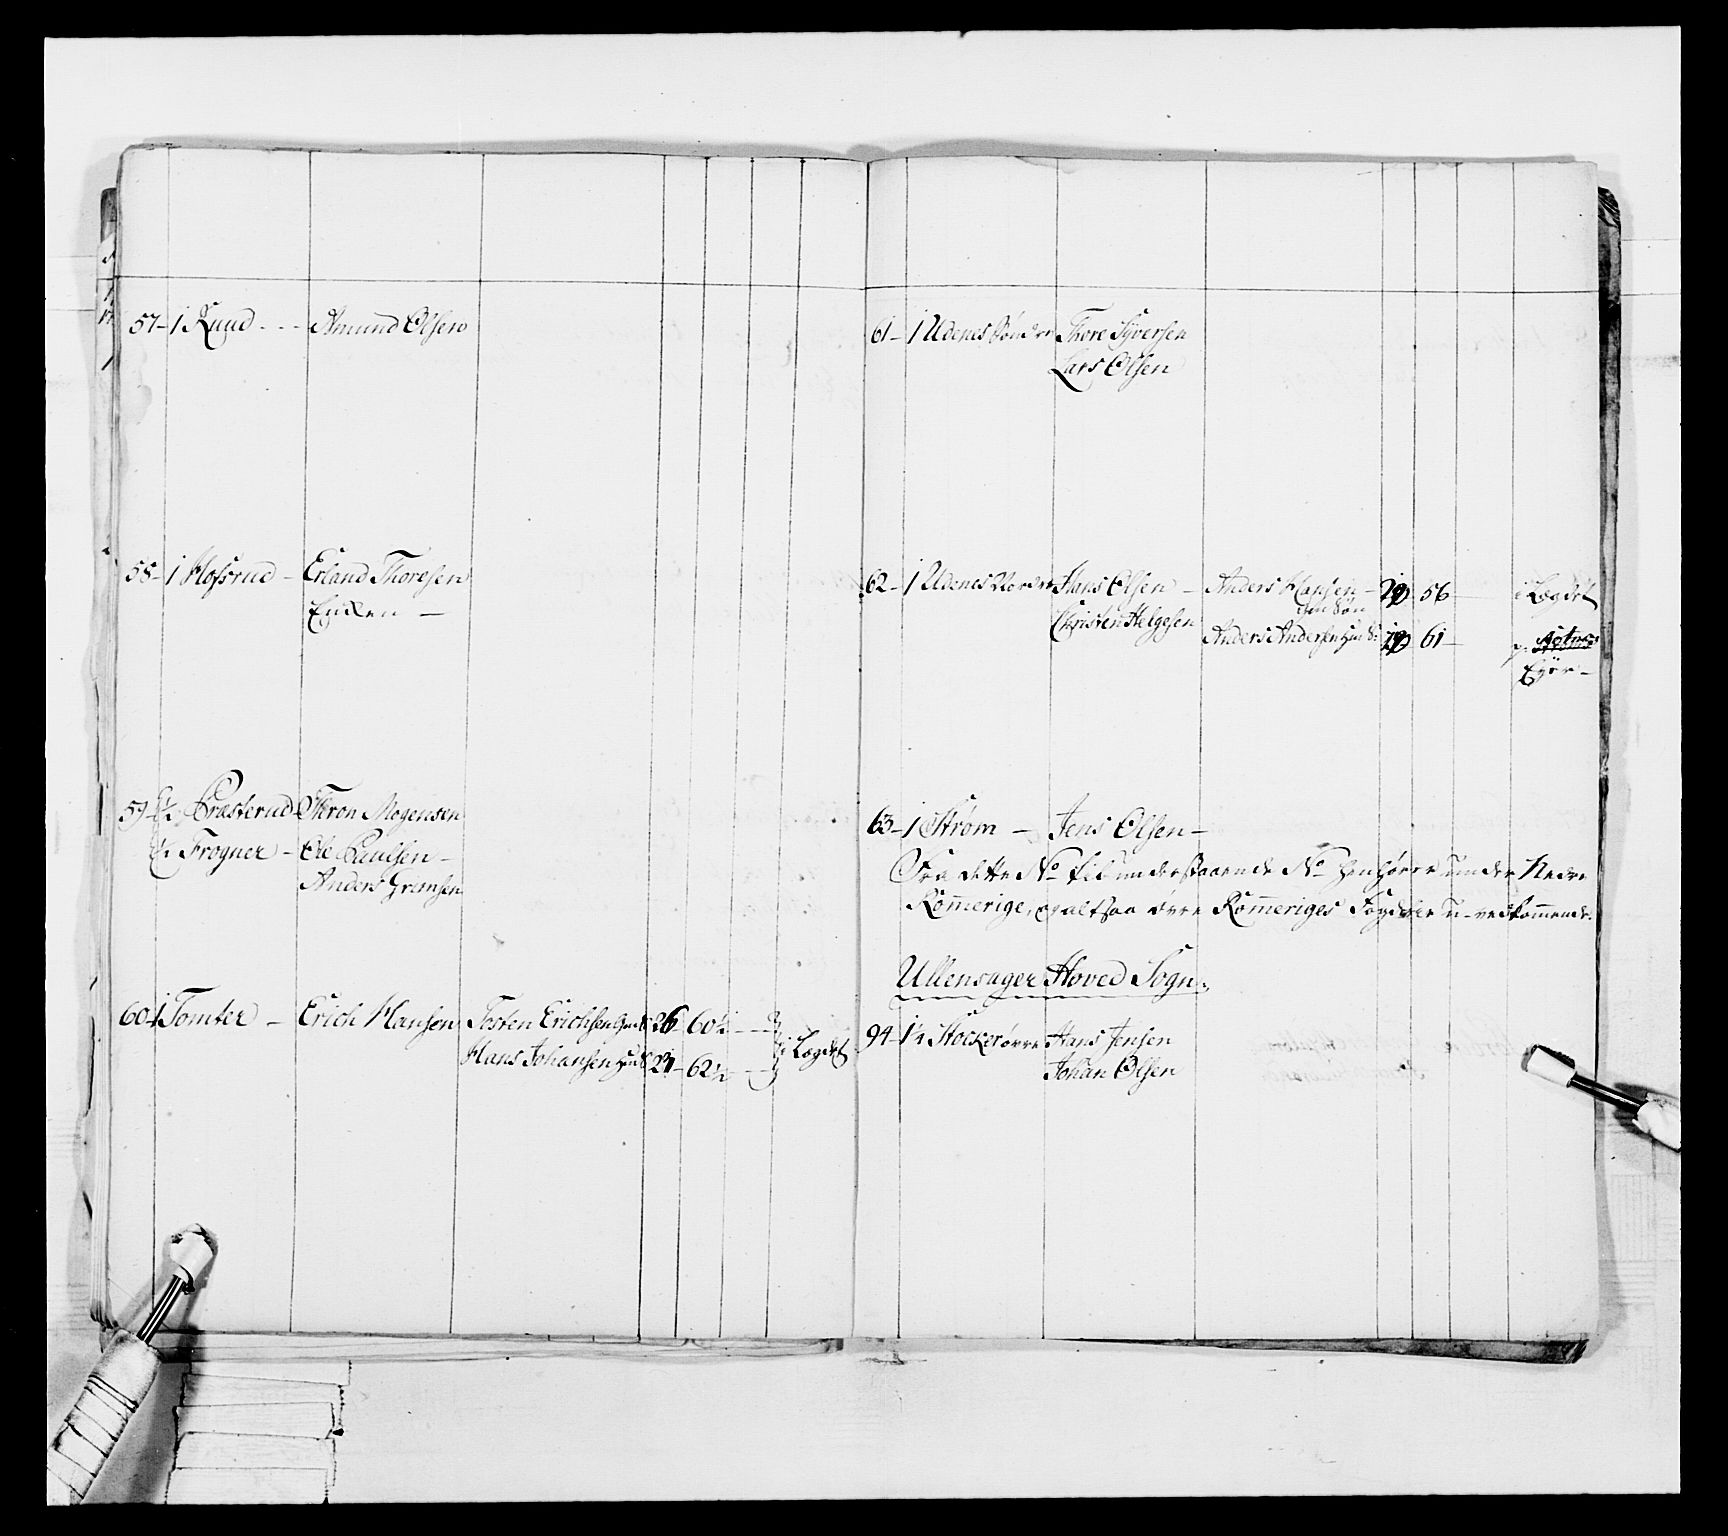 57 - 1 Ruud - - - Amund Olsen
58 - 1 Hofsrud - Erland Thoresen
Enken -
59 - ½ Præsterud Thron Mogensen
½ Frogner - Ole Paulsen -
Anders Gremsen
60 - 1 Tomter - Erich Hansen Tosten Erichsen 26 - 60½ - -
Hans Johansen 62½ - -
i Lægdet
61 - 1 Udenes Søndre Thore Syversen
Lars Olsen
62 - 1 Udenes Nordre Hans Olsen - Anders Hansen - 56 - i Lægdet
Christen Helgesen
Anders Andersen 61 -
Ejer -
63 - 1 Strøm - Jens Olsen -
Fra dette No til understaaende No henhører under Nedre
Rom̅erige, og altsaa øvre Rom̅eriges Fogderie u-vedkom̅ende.
Ullensager Hoved Sogn.
94 - 1¼ Stocker øvre Hans Jensen
Johan Olsen